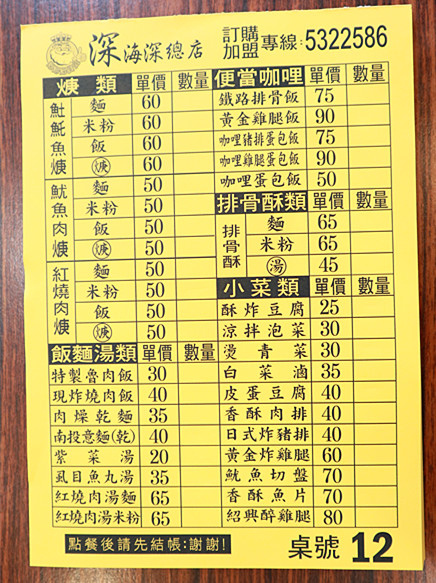 深海深總店 訂購加盟專線:5322586
焿類 單價 數量
魠魠魚焿 麵 60
米粉 60
飯 60
焿 60
魷魚肉焿 麵 50
米粉 50
飯 50
焿 50
紅燒肉焿 麵 50
米粉 50
飯 50
焿 50
飯麵湯類 單價 數量
特製魯肉飯 30
現炸燒肉飯 40
肉燥乾麵 35
南投意麵(乾) 40
紫菜湯 20
虱目魚丸湯 35
紅燒肉湯麵 65
紅燒肉湯米粉 65
便當咖哩 單價 數量
鐵路排骨飯 75
黃金雞腿飯 90
咖哩豬排蛋包飯 75
咖哩雞腿蛋包飯 90
咖哩蛋包飯 50
排骨酥類 單價 數量
排骨酥 麵 65
米粉 65
湯 45
小菜類 單價 數量
酥炸豆腐 25
涼拌泡菜 30
燙青菜 30
白菜滷 35
皮蛋豆腐 40
香酥肉排 40
日式炸豬排 40
黃金炸雞腿 60
魷魚切盤 70
香酥魚片 70
紹興醉雞腿 80
點餐後請先結帳:謝謝!
桌號 12